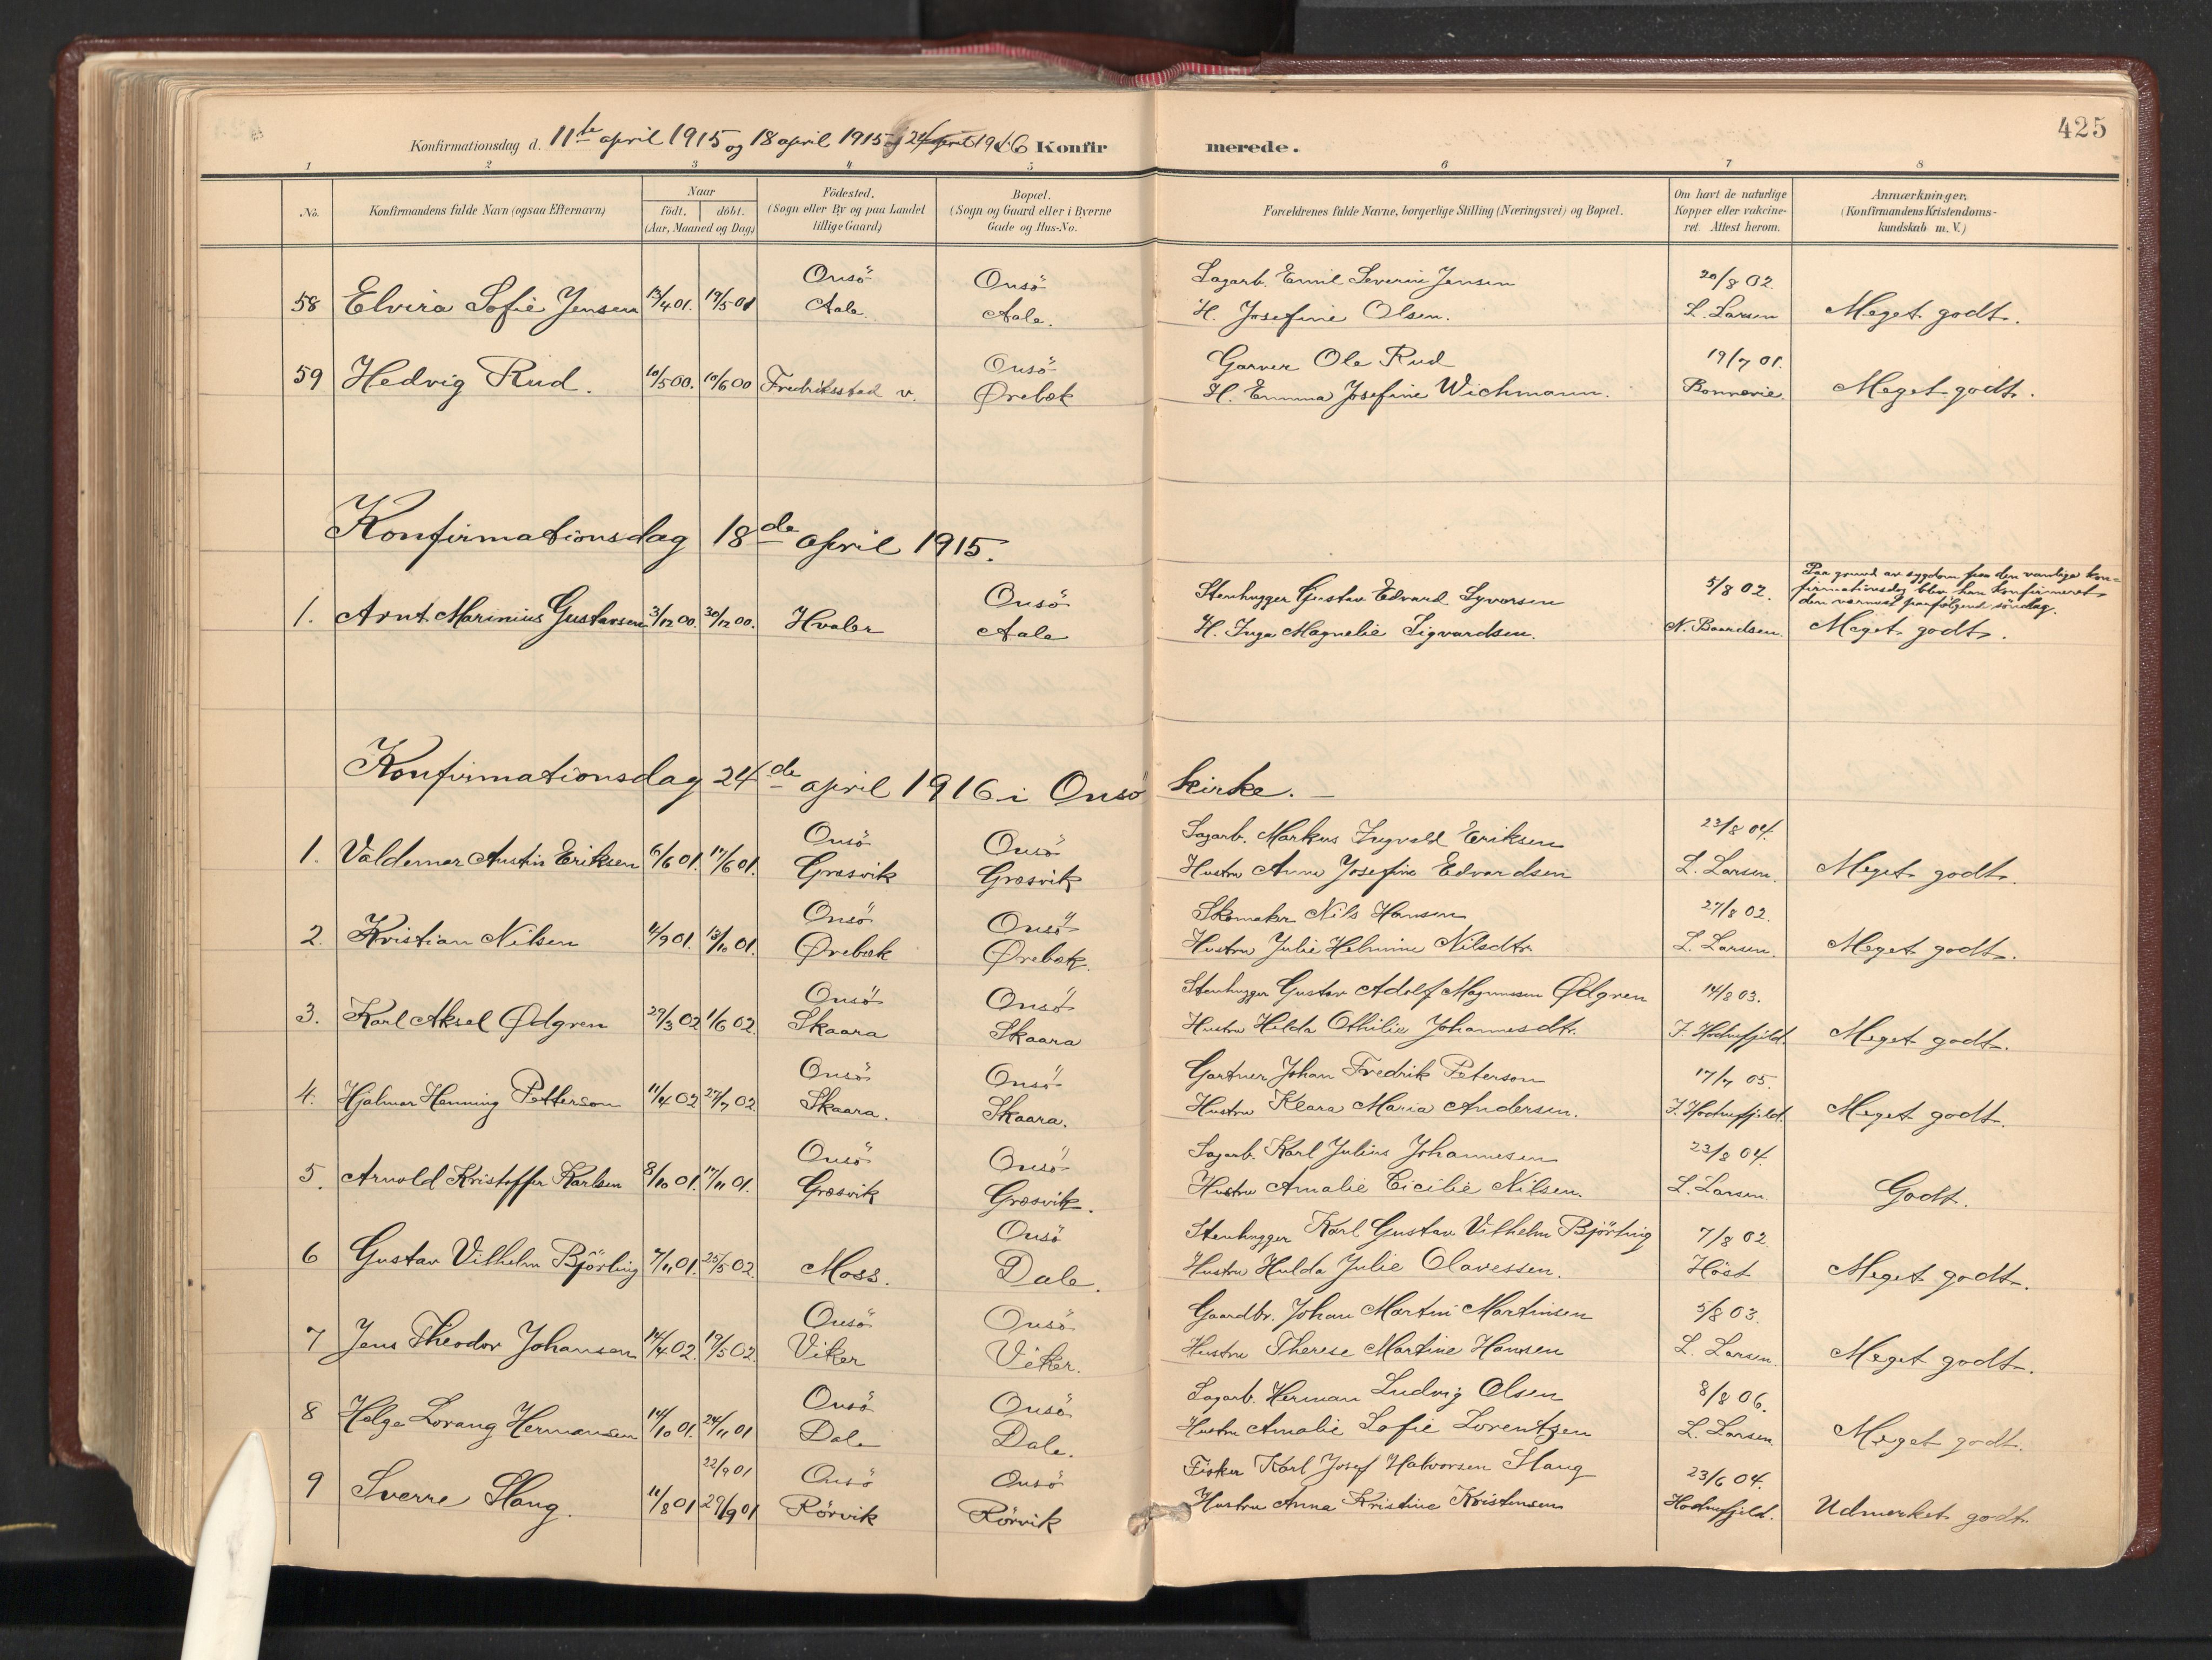 425
Konfirmationsdag d. 11te april 1915 og 18 april 1915 og 24 april 1916 Konfirmerede.
1 2 3 4 5 6 7 8
No. Konfirmandens fulde Navn (ogsaa Efternavn) Naar födt. döbt. (Aar, Maaned og Dag) Födested. (Sogn eller By og paa Landet tillige Gaard) Bopæl. (Sogn og Gaard eller i Byerne Gade og Hus-No. Forældrenes fulde Navne, borgerlige Stilling (Næringsvei) og Bopæl. Om havt de naturlige Kopper eller vakcineret. Attest herom. Anmærkninger, (Konfirmandens Kristendomskundskab m. V.)
Onsö Onsö Sagarb. Emil Severin Jensen 20/8 02.
58 Elvira Sofie Jensen 13/4 01. 19/5 01 Aale. Aale. H. Josefine Olsen. L. Larsen Meget godt.
Onsö Garver Ole Rud 19/7 01.
59 Hedvig Rud. 10/5 00. 10/6 00 Fredriksstad v. Ørebæk H. Emma Josefine Wichmann. Bonnevie. Meget godt.
Konfirmationsdag 18de april 1915.
Paa grund av sygdom paa den vanlige kon=
firmationsdag blev han konfirmeret
den nærmest paafölgende söndag.
Onsö Stenhugger Gustav Edvard Syvarsen 5/8 02.
1. Arnt Marinius Gustavsen 3/12 00. 30/12 00. Hvaler Aale H. Inga Magnelie Sigvardsen. N. Baardsen. Meget godt.
Konfirmationsdag 24de april 1916 i Onsö kirke.
Onsö Onsö Sagarb. Markus Ingvald Eriksen 23/8 04.
1. Valdemar Austin Eriksen 6/6 01. 17/6 01. Græsvik Græsvik Hustru Anna Josefine Edvardsen L. Larsen. Meget godt.
Onsö Onsö Skomaker Nils Hansen 27/8 02.
2. Kristian Nilsen 4/9 01. 13/10 01. Ørebæk Ørebæk. Hustru Julie Helmine Nilsdtr. L. Larsen. Meget godt.
Onsö Onsö Stenhugger Gustav Adolf Magnussen Ødgren 14/8 03.
3. Karl Aksel Ødgren 29/3 02 1/6 02. Skaara Skaara Hustru Hilda Othilie Johannesdtr. Meget godt.
Onsö Onsö Gartner Johan Fredrik Peterson 17/7 05.
4. Hjalmar Henning Petterson 11/4 02 27/7 02 Skaara. Skaara. Hustru Klara Maria Andersen. Meget godt.
Onsö Onsö Sagarb. Karl Julius Johannesen 23/8 04.
5. Arnold Kristoffer Karlsen 8/10 01. 17/11 01. Græsvik Græsvik. Hustru Amalie Cicilie Nilsen. L. Larsen. Godt.
Onsö Stenhugger Karl Gustav Vilhelm Björling 7/8 02.
6 Gustav Vilhelm Björling 7/11 01. 25/5 02. Moss. Dale. Hustru Hulda Julie Olavessen. Höst Meget godt.
Onsö Onsö Gaardbr. Johan Martin Martinsen 5/8 03.
7 Jens Theodor Johansen 14/4 02. 19/5 02. Viker Viker. Hustru Therese Martine Hansen L. Larsen. Meget godt.
Onsö Onsö Sagarb. Herman Ludvig Olsen 8/8 06.
8 Helge Lorang Hermansen 14/10 01. 24/11 01 Dale Dale. Hustru Amalie Sofie Lorentzen L. Larsen. Meget godt.
22/9 01 Onsö Onsö Fisker Karl Josef Halvorsen Hang 23/6 04.
9 Sverre Hang. 11/8 01 29/9 01 Rörvik Rörvik Hustru Anna Kristine Kristensen Udmerket godt.